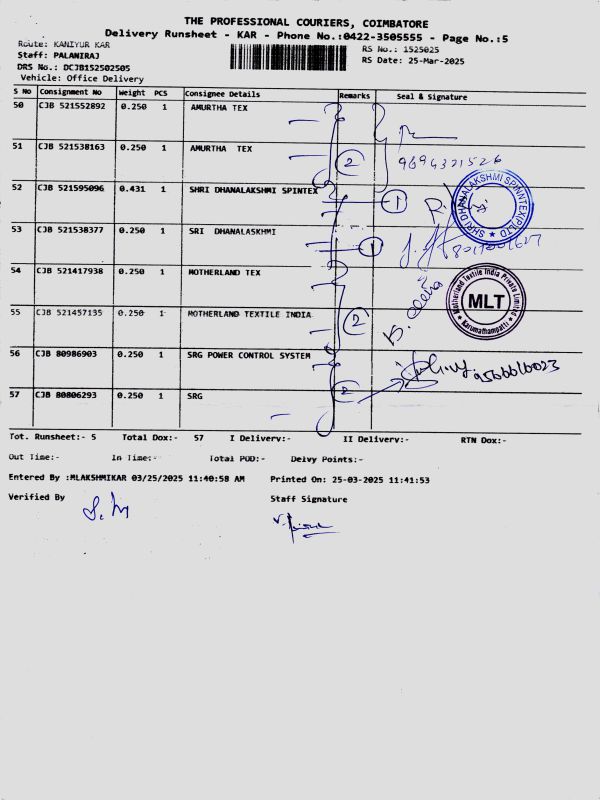 THE PROFESSIONAL COURIERS, COIMBATORE
Delivery Runsheet - KAR - Phone No.:0422-3505555 - Page No.:5
Route: KANIYUR KAR
RS No.: 1525025
Staff: PALANIRAJ
RS Date: 25-Mar-2025
DRS No.: DCJB152502505
Vehicle: Office Delivery
S No Consignment No Weight PCS Consignee Details Remarks Seal & Signature
50 CJB 521552892 0.250 1 AMURTHA TEX
51 CJB 521538163 0.250 1 AMURTHA TEX 2
52 CJB 521595096 0.431 1 SHRI DHANALAKSHMI SPINTEX 1
SHRI DHANALAKSHMI SPINTEX(P)LTD
53 CJB 521538377 0.250 1 SRI DHANALASKHMI 1
54 CJB 521417938 0.250 1 MOTHERLAND TEX
Motherland Textile India Private Limited
MLT
Karumathampatti
55 CJB 521457135 0.250 1 MOTHERLAND TEXTILE INDIA 2
56 CJB 80986903 0.250 1 SRG POWER CONTROL SYSTEM
57 CJB 80806293 0.250 1 SRG 2
Tot. Runsheet:- 5 Total Dox:- 57 I Delivery:- II Delivery:- RTN Dox:-
Out Time:- In Time:- Total POD:- Delvy Points:-
Entered By :MLAKSHMIKAR 03/25/2025 11:40:58 AM Printed On: 25-03-2025 11:41:53
Verified By Staff Signature